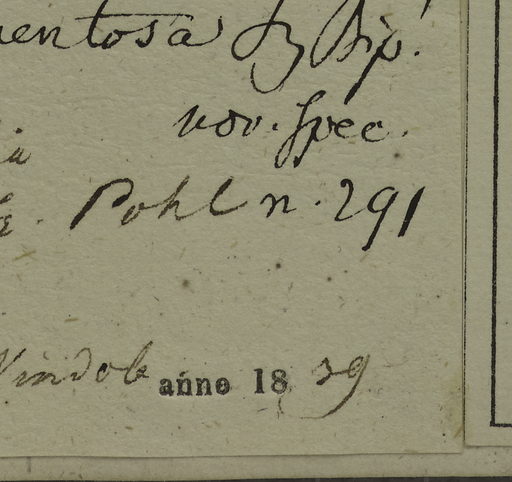 mentosa Sz Bip!
nov. spec.
ia
Pohl n. 291
Vindob anno 18 39